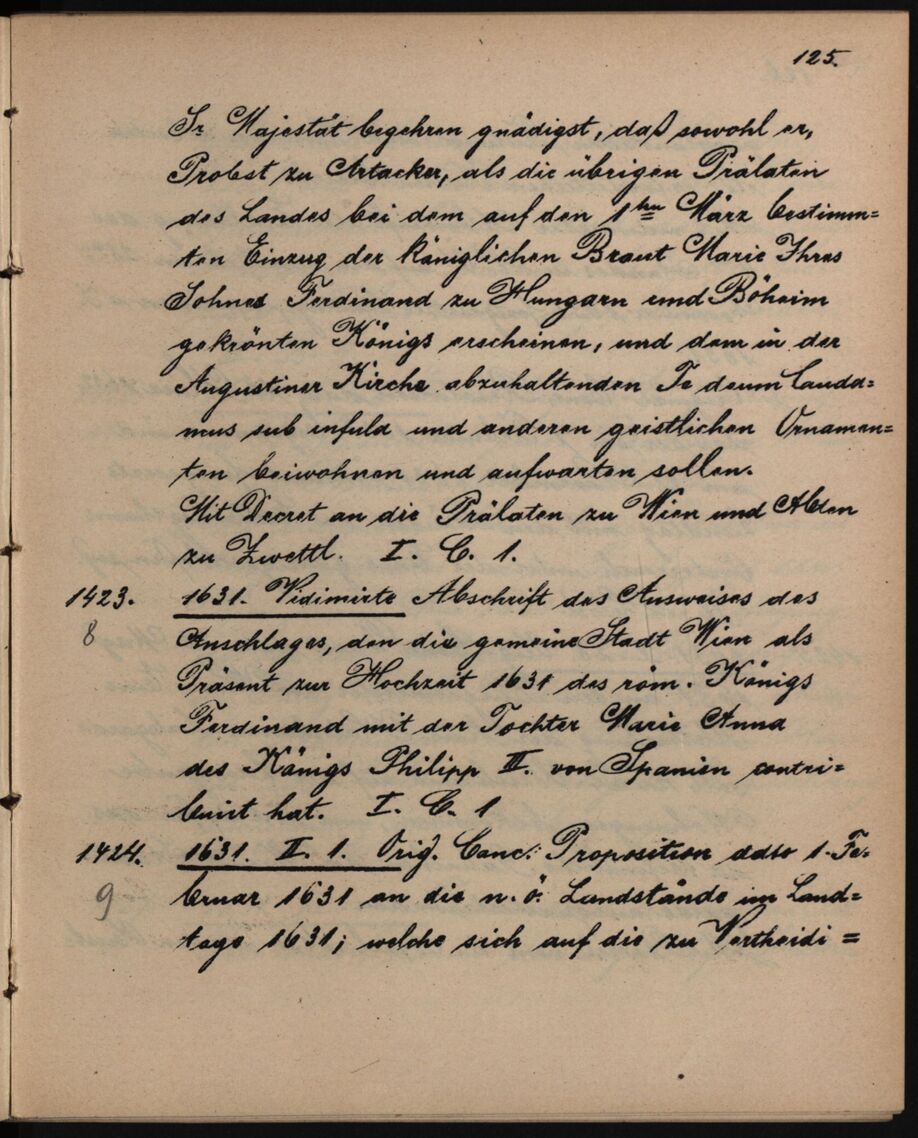 125.
Sr Majestät begehren gnädigst, daß sowohl er,
Probst zu Artacker, als die übrigen Prälaten
des Landes bei dem auf den 1ten März bestimm=
ten Einzug der königlichen Braut Marie Ihres
Sohnes Ferdinand zu Hungarn und Böheim
gekrönten Königs erscheinen, und dem in der
Augustiner Kirche abzuhaltenden Te deum lauda=
mus sub infula und anderen geistlichen Ornamen=
ten beiwohnen und aufwarten sollen.
Mit Decret an die Prälaten zu Wien und Abten
zu Zwettl. I. C. 1.
1423. 1631. Vidimirte Abschrift des Ausweises des
8 Anschlages, den die gemeine Stadt Wien als
Präsent zur Hochzeit 1631 des röm. Königs
Ferdinand mit der Tochter Marie Anna
des Königs Philipp III. von Spanien contri=
buirt hat. I. C. 1
1424. 1631. II. 1. Orig. Conc: Proposition ddto 1. Fe=
9 bruar 1631 an die n. ö. Landstände im Land=
tage 1631; welche sich auf die zu Vertheidi=